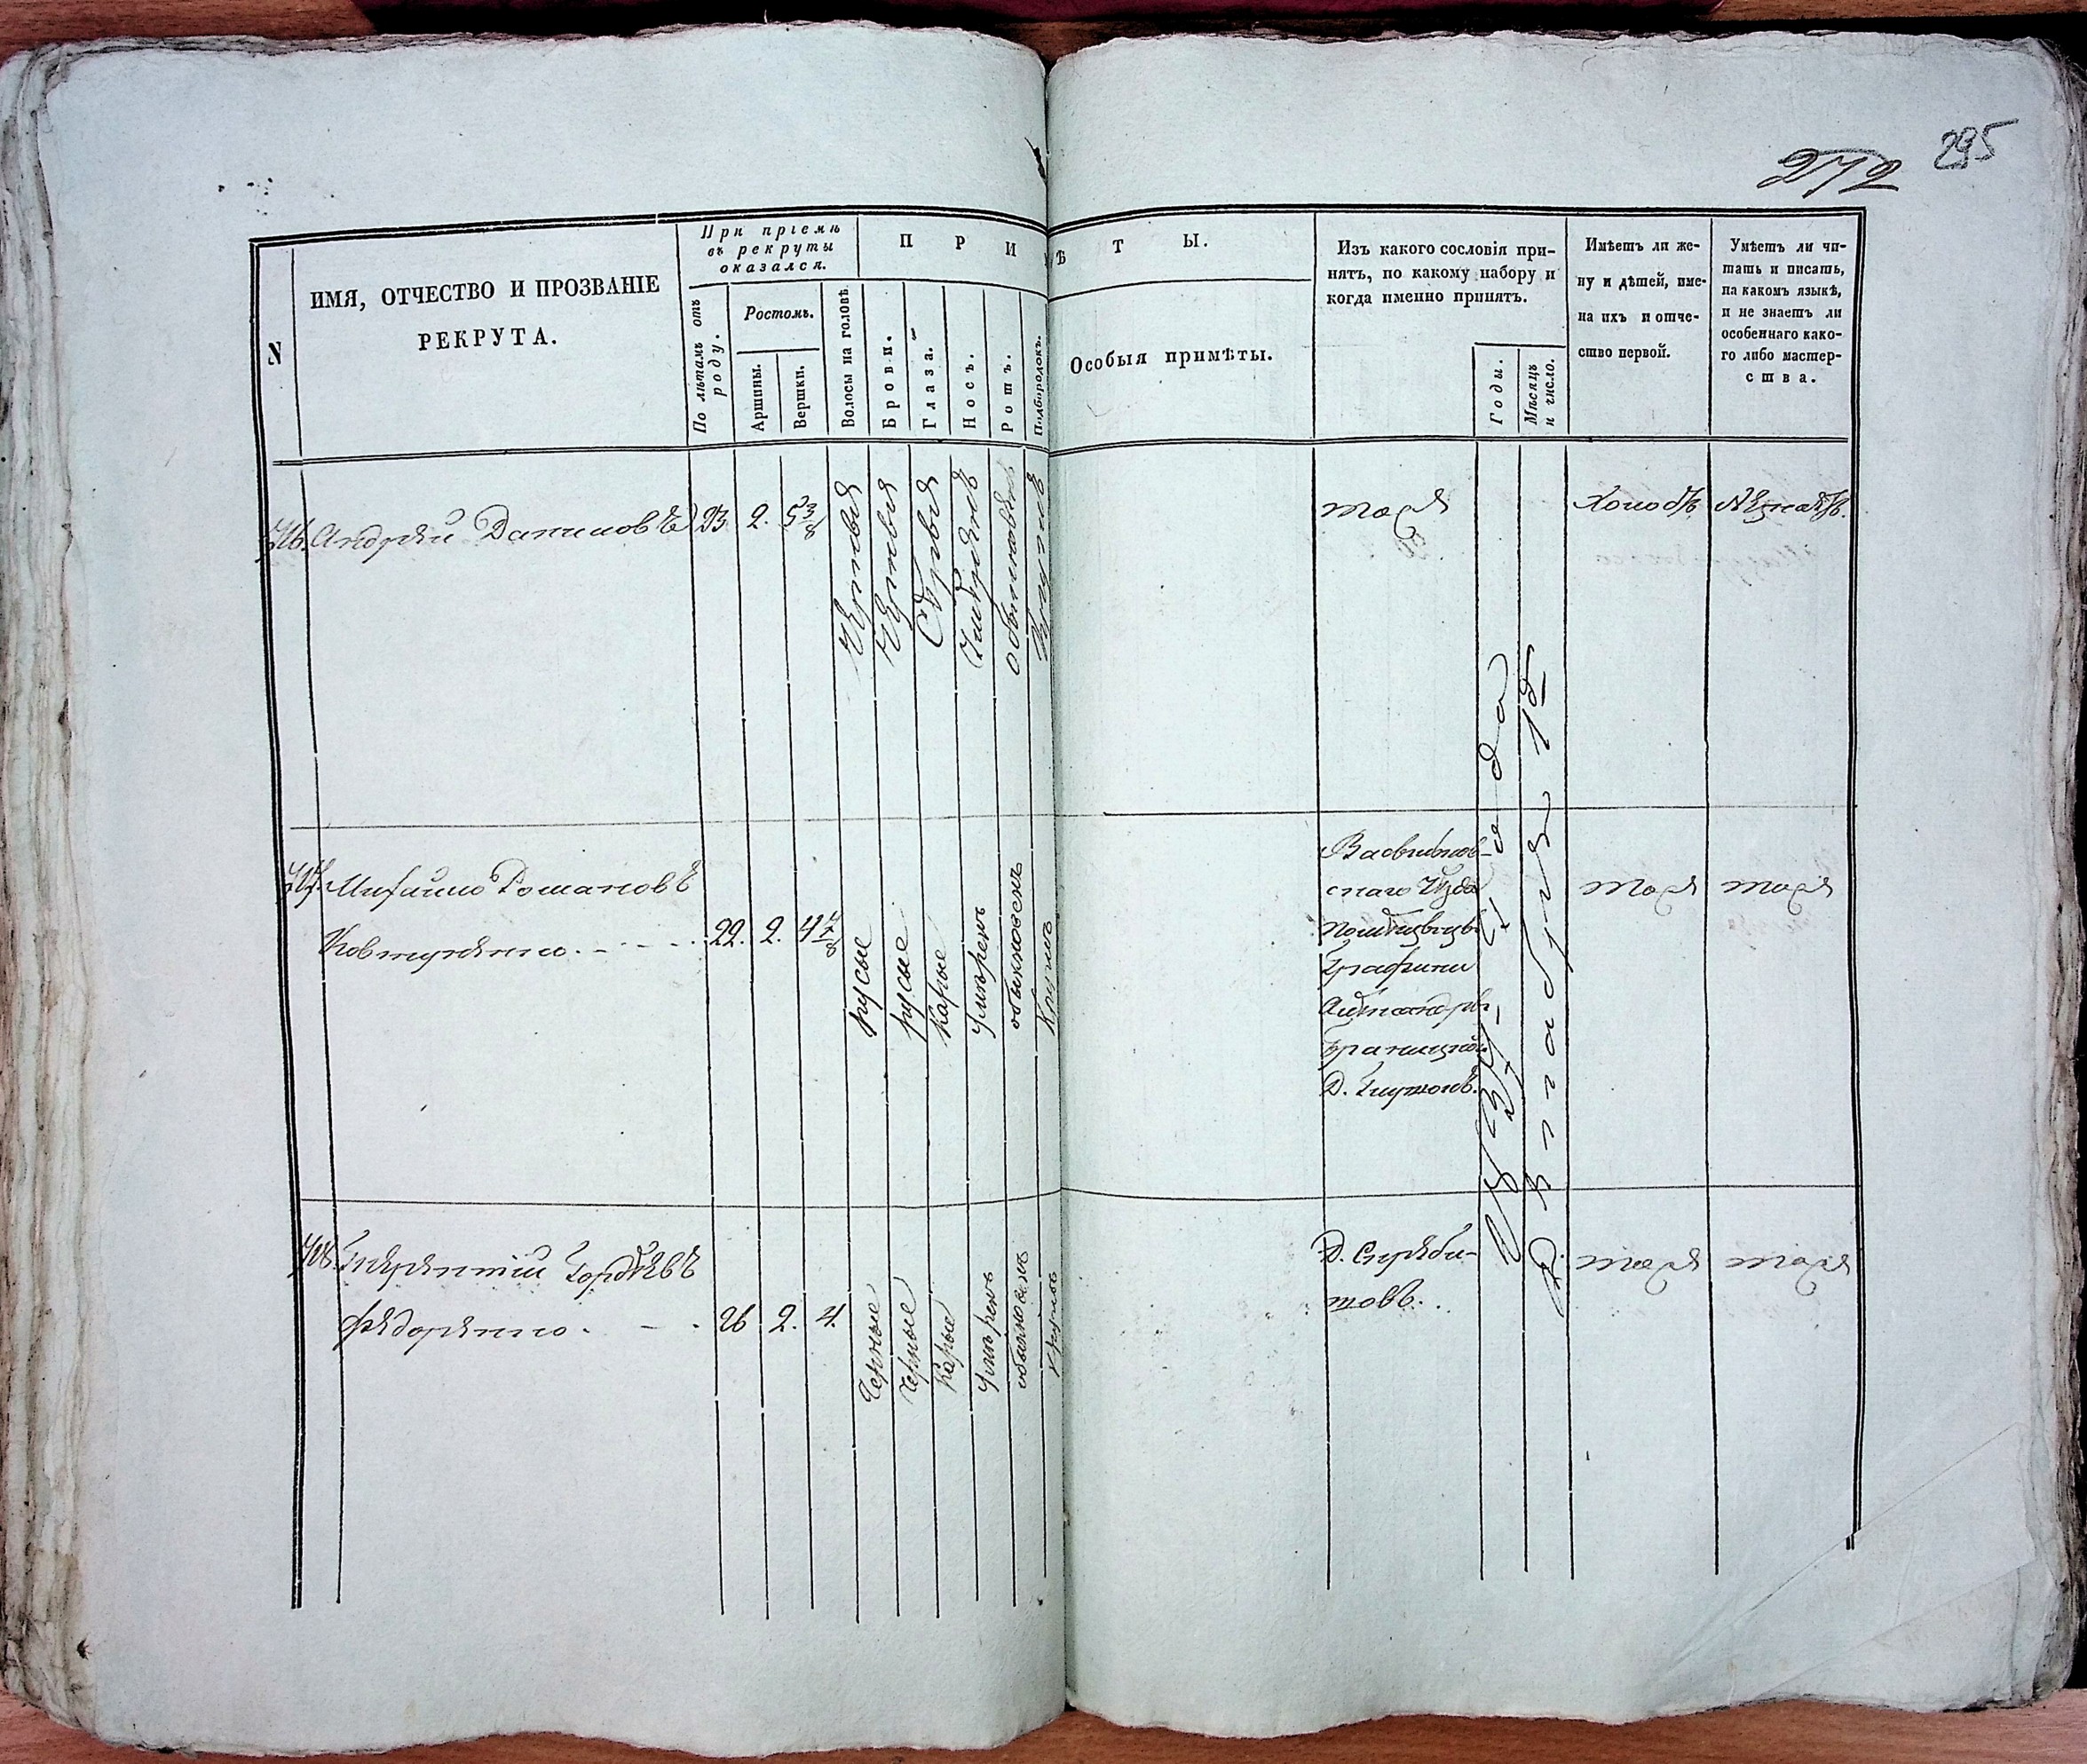 295
272
N
ИМЯ, ОТЧЕСТВО И ПРОЗВАНІЕ
РЕКРУТА.
При пріемѣ
въ рекруты
оказался.
По лѣтамъ отъ
роду.
Ростомъ.
Аршины.
Вершки.
П Р И М Ѣ Т Ы.
Волосы на головѣ.
Брови.
Глаза.
Носъ.
Ротъ.
Подбородокъ.
Особыя примѣты.
Изъ какого сословія при-
нятъ, по какому набору и
когда именно принятъ.
Годы.
Мѣсяцъ
и число.
Имѣетъ ли же-
ну и дѣтей, име-
на ихъ и отче-
ство первой.
Умѣетъ ли чи-
тать и писать,
на какомъ языкѣ,
и не знаетъ ли
особеннаго како-
го либо мастер-
ства.
Андрей Даниловъ 23 2. 5 3/8
Черныя
Черныя
Сѣрыя
Умѣренъ
обыкновенъ
Круглъ
тоже
Холостъ
Незнаетъ.
Михайло Романовъ
Ковтуненко. 22. 2. 4 7/8
русые
русые
Карые
Умѣренъ
обыкновенъ
Круглъ
Васильков-
скаго Уезда
Помещицы
Графини
Браницкой
тоже
тоже
Терентій Гордѣевъ
Федоренко. 26 2. 4.
Черные
Черные
Карые
Умѣренъ
обыкновенъ
Круглъ
тоже
тоже
года
Сентября 15